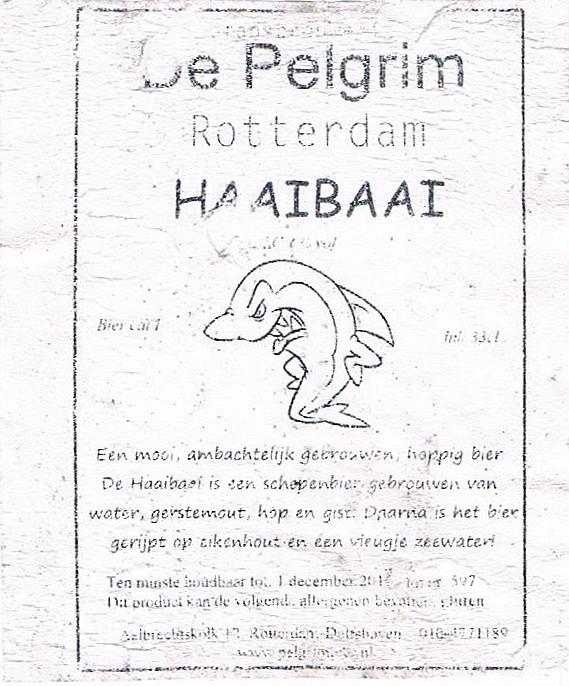 De Pelgrim
Rotterdam
HAAIBAAI
Bier cat I
Inh. 33cl.
Een mooi, ambachtelijk gebrouwen, hoppig bier
De Haaibaai is een schepenbier gebrouwen van
water, gerstemout, hop en gist. Daarna is het bier
gerijpt op eikenhout en een vleugje zeewater!
Ten minste houdbaar tot. 1 december 597
Dit product kan de volgende allergenen bevatten, gluten
Aelbrechtskolk 12 Rotterdam-Delfshaven 010-4771189